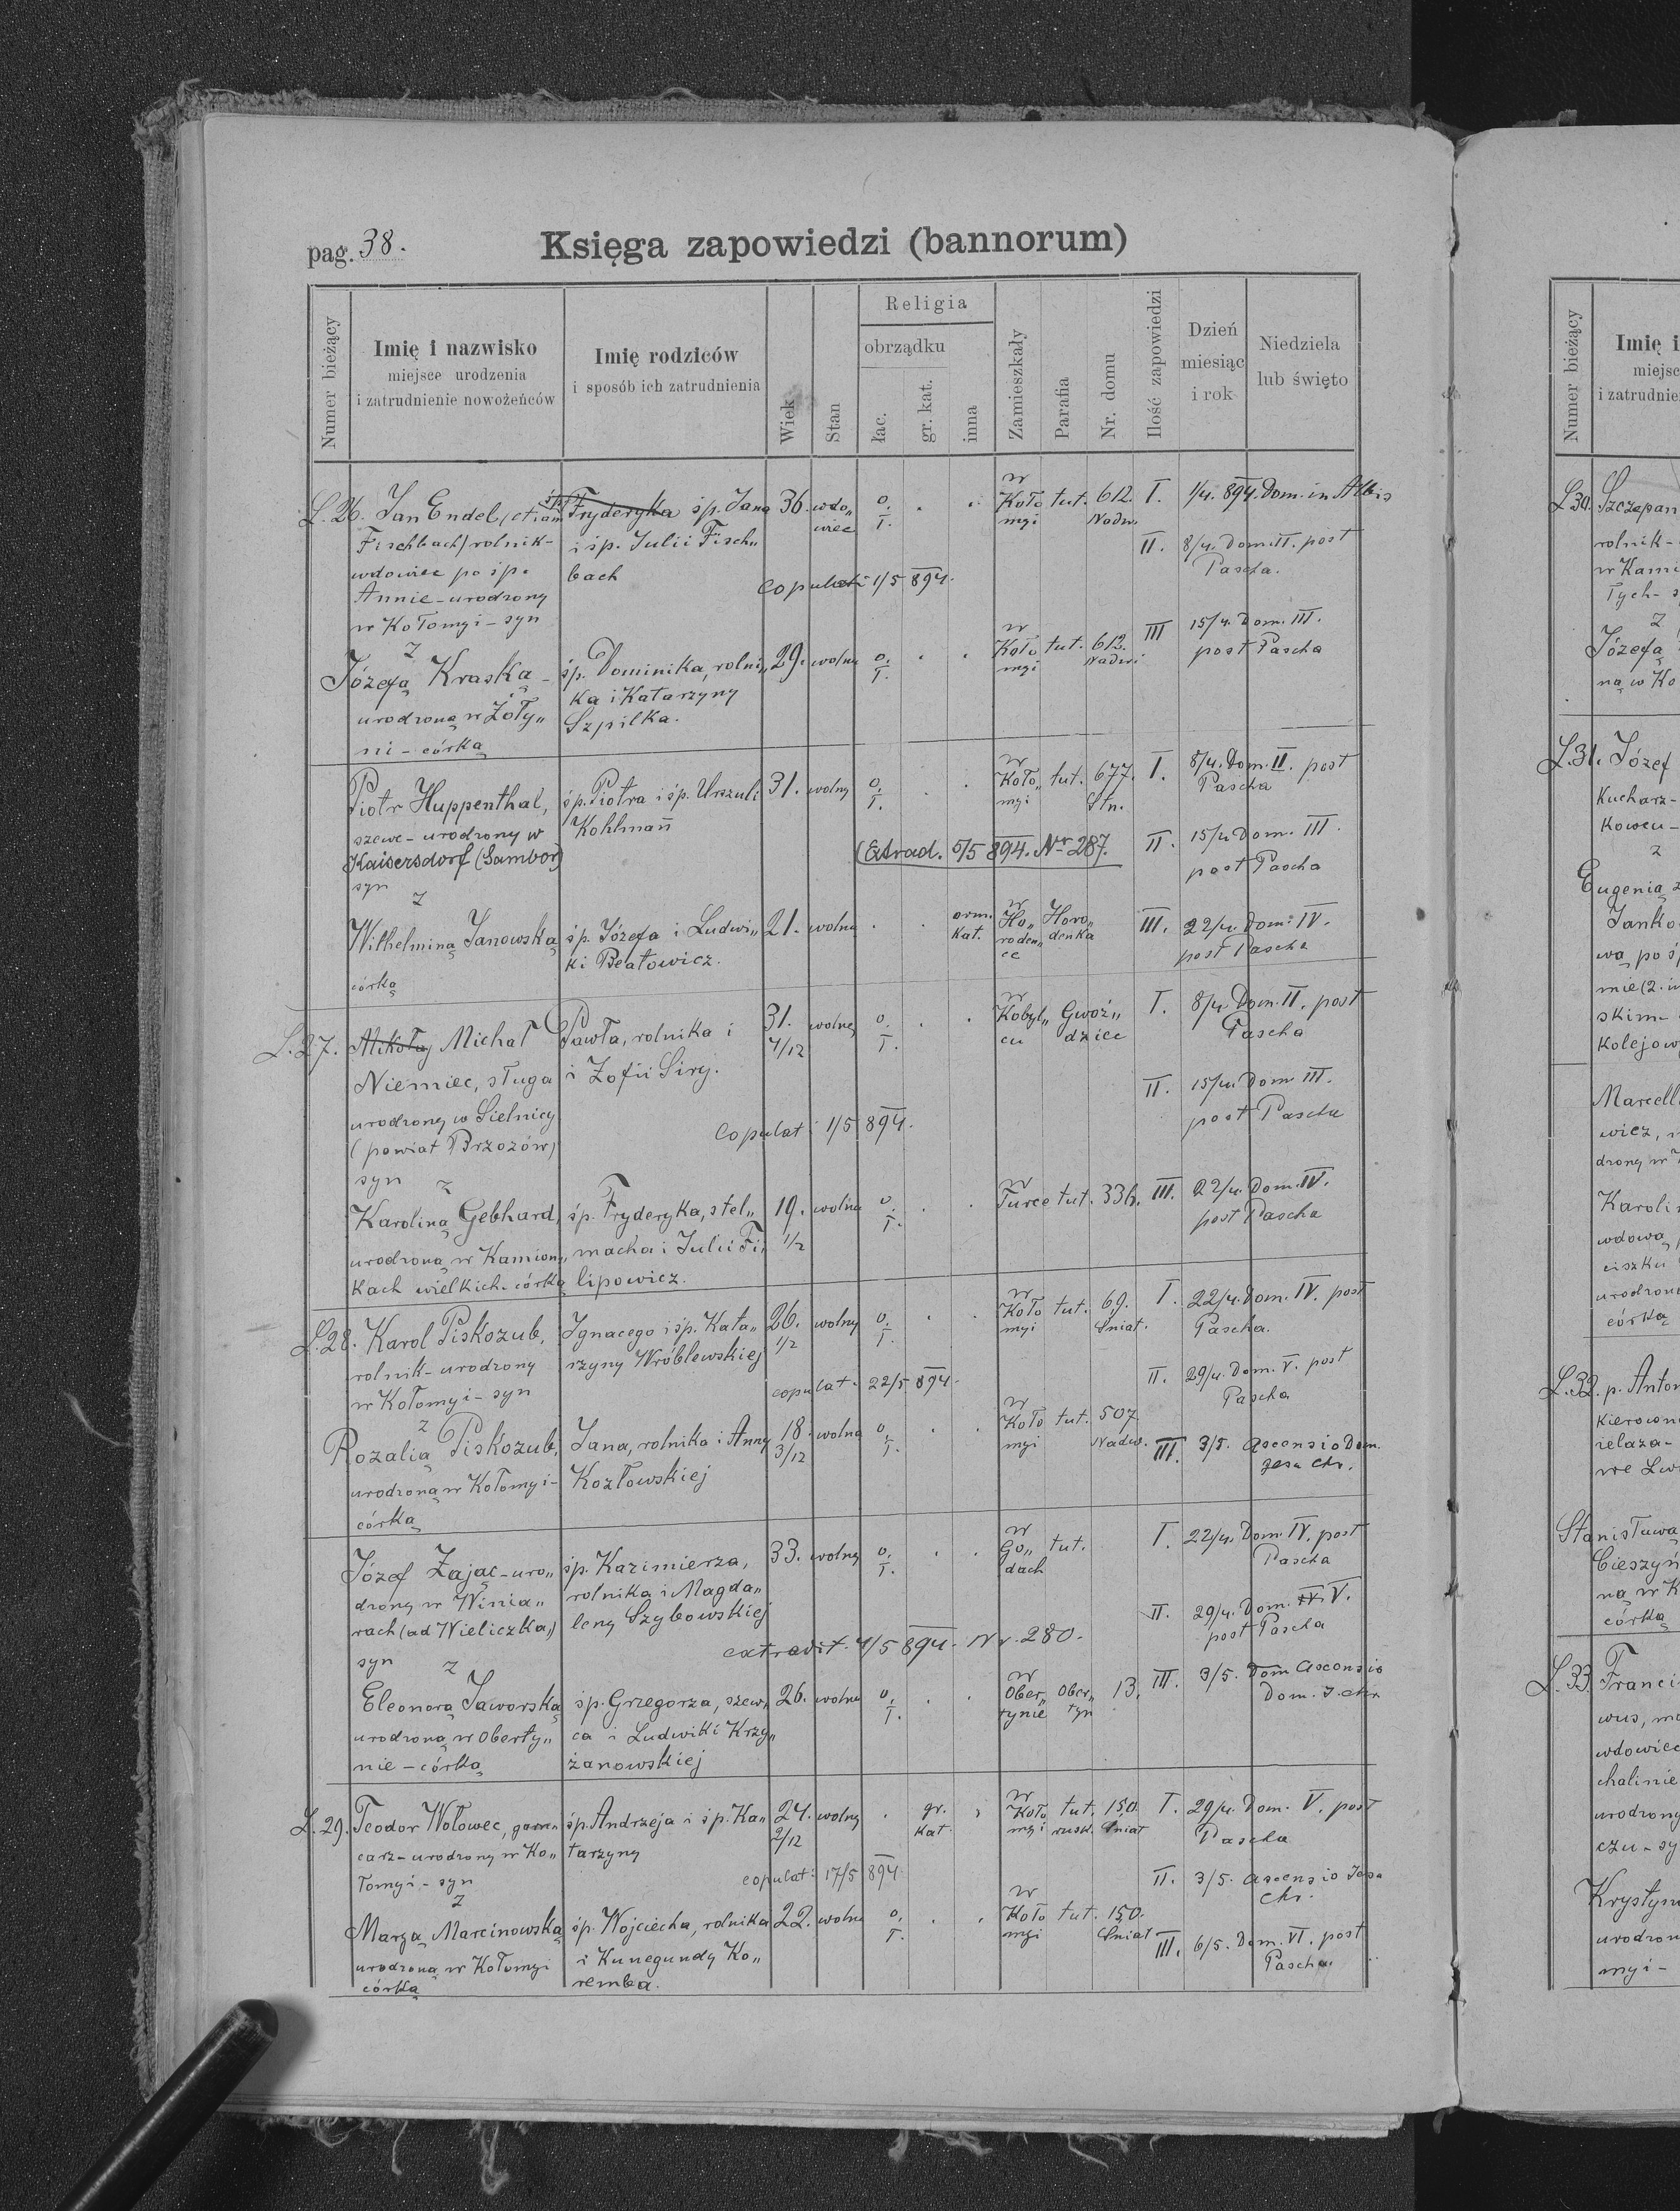 pag. 38.
Księga zapowiedzi (bannorum)
Numer bieżący
Imię i nazwisko
miejsce urodzenia
i zatrudnienie nowożeńców
Imię rodziców
i sposób ich zatrudnienia
Wiek
Stan
Religia
obrządku
łac.
gr. kat.
inna
Zamieszkały
Parafia
Nr. domu
Ilość zapowiedzi
Dzień
miesiąc
i rok
Niedziela
lub święto
L. 26. Jan Endel, (etiam
Fischbach) rolnik-
wdowiec po śp.
Annie - urodzony
w Kołomyi - syn
z
Fryderyka śp. Jana
i śp. Julii Fisch„
bach
36. wdo„
wiec
o.
ł.
w
Koło
myi
tut. 612.
Nadw.
I. 1/4. 894. Dom. in Albis
II. 8/4. Dom. II. post
Pascha.
copulati 1/5 894.
III 15/4. Dom. III.
post Pascha
Józefą Kraską -
urodzoną w Żoły„
ni - córką
śp. Dominika, rolni„
ka i Katarzyny
Szpilka.
29. wolna
o.
ł.
w
Koło
myi
tut. 612.
Nadw.
Piotr Huppenthal,
szewc - urodzony w
Kaisersdorf (Sambor)
syn
z
śp. Piotra i śp. Urszuli
Kohlmañ
31. wolny
o.
ł.
w
Koło„
myi
tut. 677.
Stn.
I. 8/4. Dom. II. post
Pascha
(Extrad. 5/5 894. Nr 287.
II. 15/4 Dom. III.
post Pascha
Wilhelminą Janowską
córką
śp. Józefa i Ludwi„
ki Beatowicz.
21. wolna
orm.
kat.
w
Ho„
roden„
ce
Horo„
denka
III. 22/4. Dom. IV.
post Pascha
L. 27. Mikołaj Michał
Niemiec, sługa
urodzony w Sielnicy
(powiat Brzozów)
syn z
Pawła, rolnika i
i Zofii Siry.
31.
4/12
wolny
o.
ł.
w
Kobyl„
cu
Gwoź„
dziec
I. 8/4. Dom. II. post
Pascha
II. 15/4. Dom III.
post Pascha
copulat: 1/5 894.
Karoliną Gebhard,
urodzoną w Kamion„
kach wielkich. córką
śp. Fryderyka, stel„
macha i Julii Fi„
lipowicz.
19.
1/2
wolna
o.
ł.
w
Turce tut. 336.
III. 22/4. Dom. IV.
post Pascha
L. 28. Karol Piskozub,
rolnik - urodzony
w Kołomyi - syn
z
Ignacego i śp. Kata„
rzyny Wróblewskiej
26.
1/2
wolny
o.
ł.
w
Koło
myi
tut. 69.
Śniat.
I. 22/4. Dom. IV. post
Pascha.
II. 29/4. Dom. V. post
Pascha
copulat: 22/5 894.
Rozalią Piskozub,
urodzoną w Kołomyi -
córką
Jana, rolnika i Anny
Kozłowskiej
18.
3/12
wolna
o.
ł.
w
Koło
myi
tut. 507
Nadw.
III. 3/5. Ascensio Dom.
Jesu Chr.
Józef Zając - uro„
dzony w Winia„
rach (ad Wieliczka)
syn z
śp. Kazimierza,
rolnika i Magda„
leny Szybowskiej
33. wolny
o.
ł.
w
Go„
dach
tut.
I. 22/4. Dom. IV. post
Pascha
II. 29/4. Dom. IV. V.
post Pascha
extradit. 4/5 894. Nr. 280.
Eleonorą Jaworską
urodzoną w Oberty„
nie - córką
śp. Grzegorza, szew„
ca i Ludwiki Krzy„
żanowskiej
26. wolna
o.
ł.
w
Ober„
tynie
Ober„
tyn
13.
III. 3/5. Dom Ascensio
Dom. J. Chr.
L. 29. Teodor Wołowec, garn„
carz - urodzony w Ko„
łomyi - syn
z
śp. Andrzeja i śp. Ka„
tarzyny
24.
2/12
wolny
gr.
kat.
w
Koło
myi
tut.
rusk.
150.
Śniat
I. 29/4. Dom. V. post
Pascha
II. 3/5. Ascensio Jesu
Chr.
copulat: 17/5 894
Maryą Marcinowską
urodzoną w Kołomyi
córką
śp. Wojciecha, rolnika
i Kunegundy Ko„
remba.
22. wolna
o.
ł.
w
Koło
myi
tut. 150.
Śniat
III. 6/5. Dom. VI. post
Pascha.
Numer bieżący
Imię i
miejsc
i zatrudnie
L. 30. Szczepan
rolnik -
w Kami
tych - s
z
Józefą
ną w Ko
L. 31. Józef
Kucharz -
Kowcu -
z
Eugenią z
Janko
wą po śp
mie (2.
skim -
Kolejow
Marcell
wicz,
drony w
Karoli
wdową
ciszku
urodzoną
córką
L. 32. p. Anton
kierown
żelaza -
we Lw
Stanisławą
Cieszyń
ną w K
córką
L. 33. Franci
wus, mo
wdowiec
chalinie
urodzony
czu - sy
Krystyn
urodzon
myi -